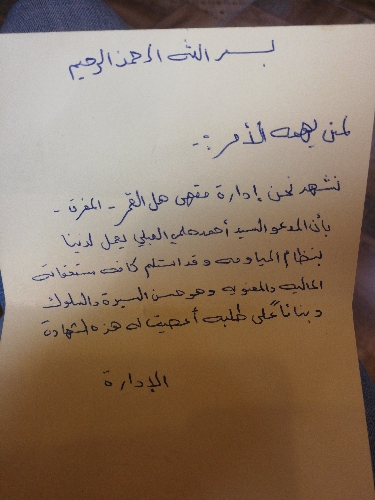 بسم الله الرحمن الرحيم
لمن يهمه الأمر :-
نشهد نحن إدارة مقهى هل القمر - المفرق -
بأن المدعو السيد أحمد علي العلي يعمل لدينا
بنظام المياومه وقد استلم كافه ستحقاته
الماليه والمعنويه وهو حسن السيرة والسلوك
وبناءاً على طلبه أعطيت له هذه الشهادة
الإدارة